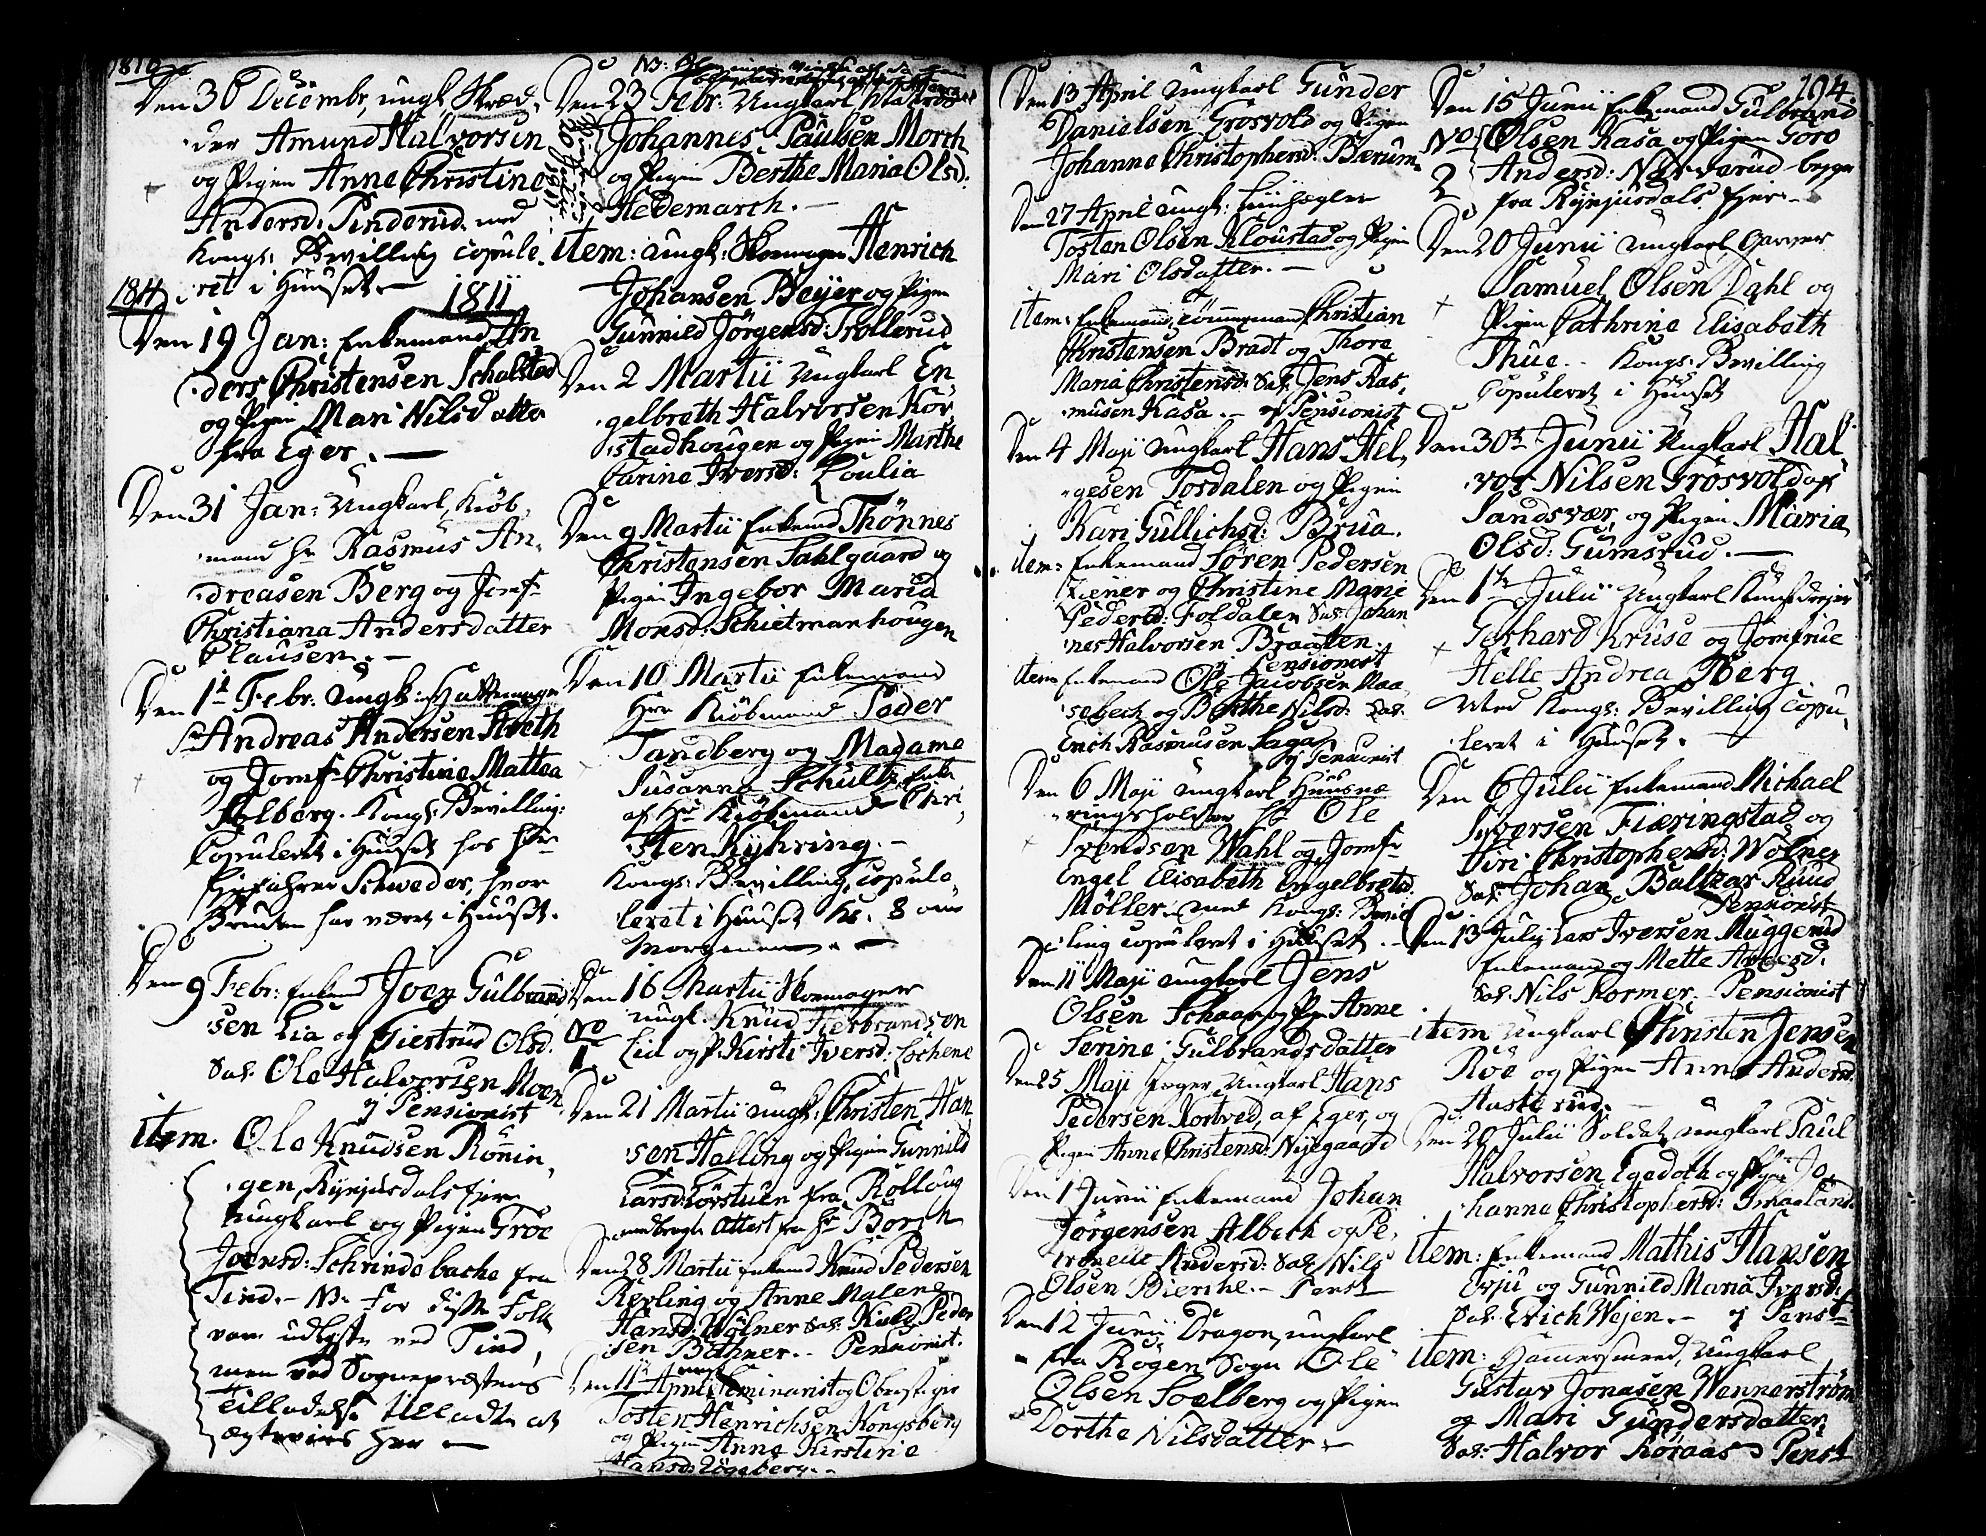 1810
Den 30 Decembr, ungk. Skræd-
der Amund Halvorsen
og Pigen Anne Christine
Andersd: Pinderud med
Kongs: Bevilling copule-
ret i Huuset
1811
1811
Den 19 Jan: Enkemand An
ders Christensen Schalstad
og Pigen Mari Nilsdatter
fra Eger.
Den 31 Jan: Ungkarl, Kiøb-
mand Hr Rasmus An-
dreasen Berg og Jomf
Christiana Andersdatter
Clausen.
Den 1t Febr. Ungk: Hattemager
Sr Andreas Andersen Aveth
og Jomf Christine Mattea
Holberg. Kongs: Bevilling:
Copuleret i Huuset hos Hr
Schweder, hvor
Bruden har været i Huuset.
Den 9 Febr: Enkemd Joen Gulbrand
sen Lia og Giertrud Olsd.
Sal. Ole Halvorsen Moen
ej Pensionist
item. Ole Knudsen Rønnin-
gen, Rynjusdals fjer
Ungkarl og Pigen Groe
Joensd: Schrindebache fra
Tind. NB. for disse Folk
vare udlyste ved Tind,
men ved Sognepræstens
Tilladelse tilladt at
ægtevies her
NB:
Den 23 Febr: Ungkarl
Johannes Paulsen Morch
og Pigen Berthe Maria Olsd:
Hedemarch.
item: Ungk: Skoemager Henrich
Johansen Beyer og Pigen
Gunnild Jørgensd: Trollerud
Den 2 Martii Ungkarl En
gelbreth Halvorsen Kor
stadhougen og Pigen Marthe
Carine Iversd: Poulia
Den 9 Martii Enkemd Thønnes
Christensen Sahlgaard og
Pigen Ingebor Maria
Monsd: Schietmanhougen
Den 10 Martii Enkemand
Herr Kiøbmand Peder
Tandberg og Madame
Susanna Schultz Enke
af Hr Kiøbmand Chri
sten Kyhring.
Kongs: Bevilling, copule
leret i Huuset Kl. 8 om
Morgenen.
Den 16 Martii Skoemager
No 1
ungk. Knud Herbrandsen
Lid og P. Kirsti Iversd: Lochene
Den 21 Martii Ungk: Christen Han
sen Halling og Pigen Gunnild
Larsd: Lørstuen fra Rolloug
medbragte Attest fra Hr Borch
Den 28 Martii Enkemd Knud Pedersen
Kerling og Anne Malene
Hansd: Wølner Sal: Niels Peder
sen Bøhner. Pensionist.
Den 11 April Seminarist og
Tosten Henrichsen Kongsberg
og Pigen Anne Kirstine
Hansd:
Den 13 April Ungkarl Gunder
Danielsen Grosvold og Pigen
Johanne Christophersd: Bærum
Den 27 April Ungk:
Tosten Olsen Kloustad og Pigen
Mari Olsdatter.
item: Enkemand, Christian
Christensen Bradt og Thore
Maria Christensd: Sal. Jens Ras-
musen Kasa. ej Pensionist
Den 4 Maji Ungkarl Hans Hel-
gesen Tosdalen og Pigen
Kari Gullichsd: Brua.
item: Enkemand Søren Pedersen
Kiener og Christine Marie
Pedersd: Foldalen Sal. Johan
nes Halvorsen Braaten.
ej Pensionist
item Enkemand Ole Jacobsen Maa
sebech og Berthe Nilsd: Sal.
Erich Rasmusen Saga
ej Pensionist
Den 6 Maji Ungkarl Huusnæ
ringsholder Sr Ole
Svendsen Wahl og Jomf
Engel Elisabeth Engelbretsd.
Møller med Kongs: Bevil
ling copuleret i Huuset.
Den 11 Maji Ungkarl Jens
Olsen Schaar og P. Anne
Serine Gulbrandsdatter
Den 25 Maji Jæger, Ungkarl Hans
Pedersen Kortved af Eger, og
Pigen Anne Christensd: Nyegaard
Den 1 Junii Enkemand Johan
Jørgensen Albech og Pe-
tronelle Andersd: Sal Nils
Olsen Bierche. Penst
Den 12 Junii Dragon, ungkarl
fra Røgen Sogn Ole
Olsen Soelberg og Pigen
Dorthe Nilsdatter.
194.
Den 15 Junii Enkemand Gulbrand
No 2
Olsen Kasa og Pigen Goro
Andersd: Narverud begge
fra Rynjusdals fjer.
Den 20 Junii Ungkarl, Garver
Samuel Olsen Dahl og
Pigen Cathrine Elisabeth
Thue. Kongs: Bevilling
Copuleret i Huuset
Den 30t Junii Ungkarl Hal
vor Nilsen Grosvold af
Sandsvær, og Pigen Maria
Olsd: Gumsrud.
Den 1te Julii Ungkarl Kunstdrejer
Gerhard Kruse og Jomfrue
Helle Andrea Berg.
Med Kongs: Bevilling Copu-
leret i Huuset.
Den 6 Julii Enkemand Michael
Syversen Fiæringstad og
Siri Christophersd: Wølner
Sal. Johan Baltzar Ruud
Pensionist
Den 13 Julij Lars Iversen Muggerud
Enkemand og Mette Andersd.
Sal: Nils Kormer. Pensionist
item Ungkarl Christen Jensen
Roe og Pigen Anne Andersd.
Austerud.
Den 20 Julii Soldat, Ungkarl Paul
Halvorsen Egedoth og Pigen Jo-
hanne Christophersd: Smaaland.
item: Enkemand Mathis Hansen
Evju og Gunnild Maria Iversd:
Sal. Erich Wejen. ej Penst
item: Hamersmed, Ungkarl
Gustav Jonasen Wennerstrøm
og Mari Gundersdatter
Sal: Halvor Køraas. Penst